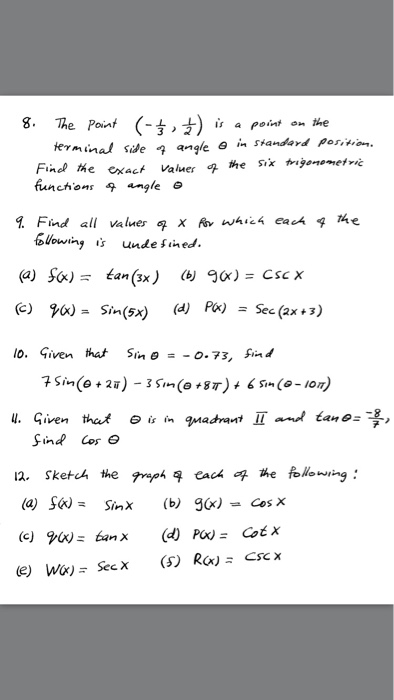 8. The Point (-1/3, 1/2) is a point on the
terminal side of angle θ in standard position.
Find the exact values of the six trigonometric
functions of angle θ
9. Find all values of x for which each of the
following is undefined.
(a) f(x) = tan(3x) (b) g(x) = csc x
(c) q(x) = Sin(5x) (d) P(x) = Sec(2x+3)
10. Given that Sin θ = -0.73, find
7 Sin(θ + 2π) - 3 Sin(θ + 8π) + 6 Sin(θ - 10π)
11. Given that θ is in quadrant II and tan θ = -8/7,
find cos θ
12. Sketch the graph of each of the following:
(a) f(x) = Sin x (b) g(x) = cos x
(c) q(x) = tan x (d) P(x) = Cot x
(e) W(x) = Sec x (f) R(x) = Csc x